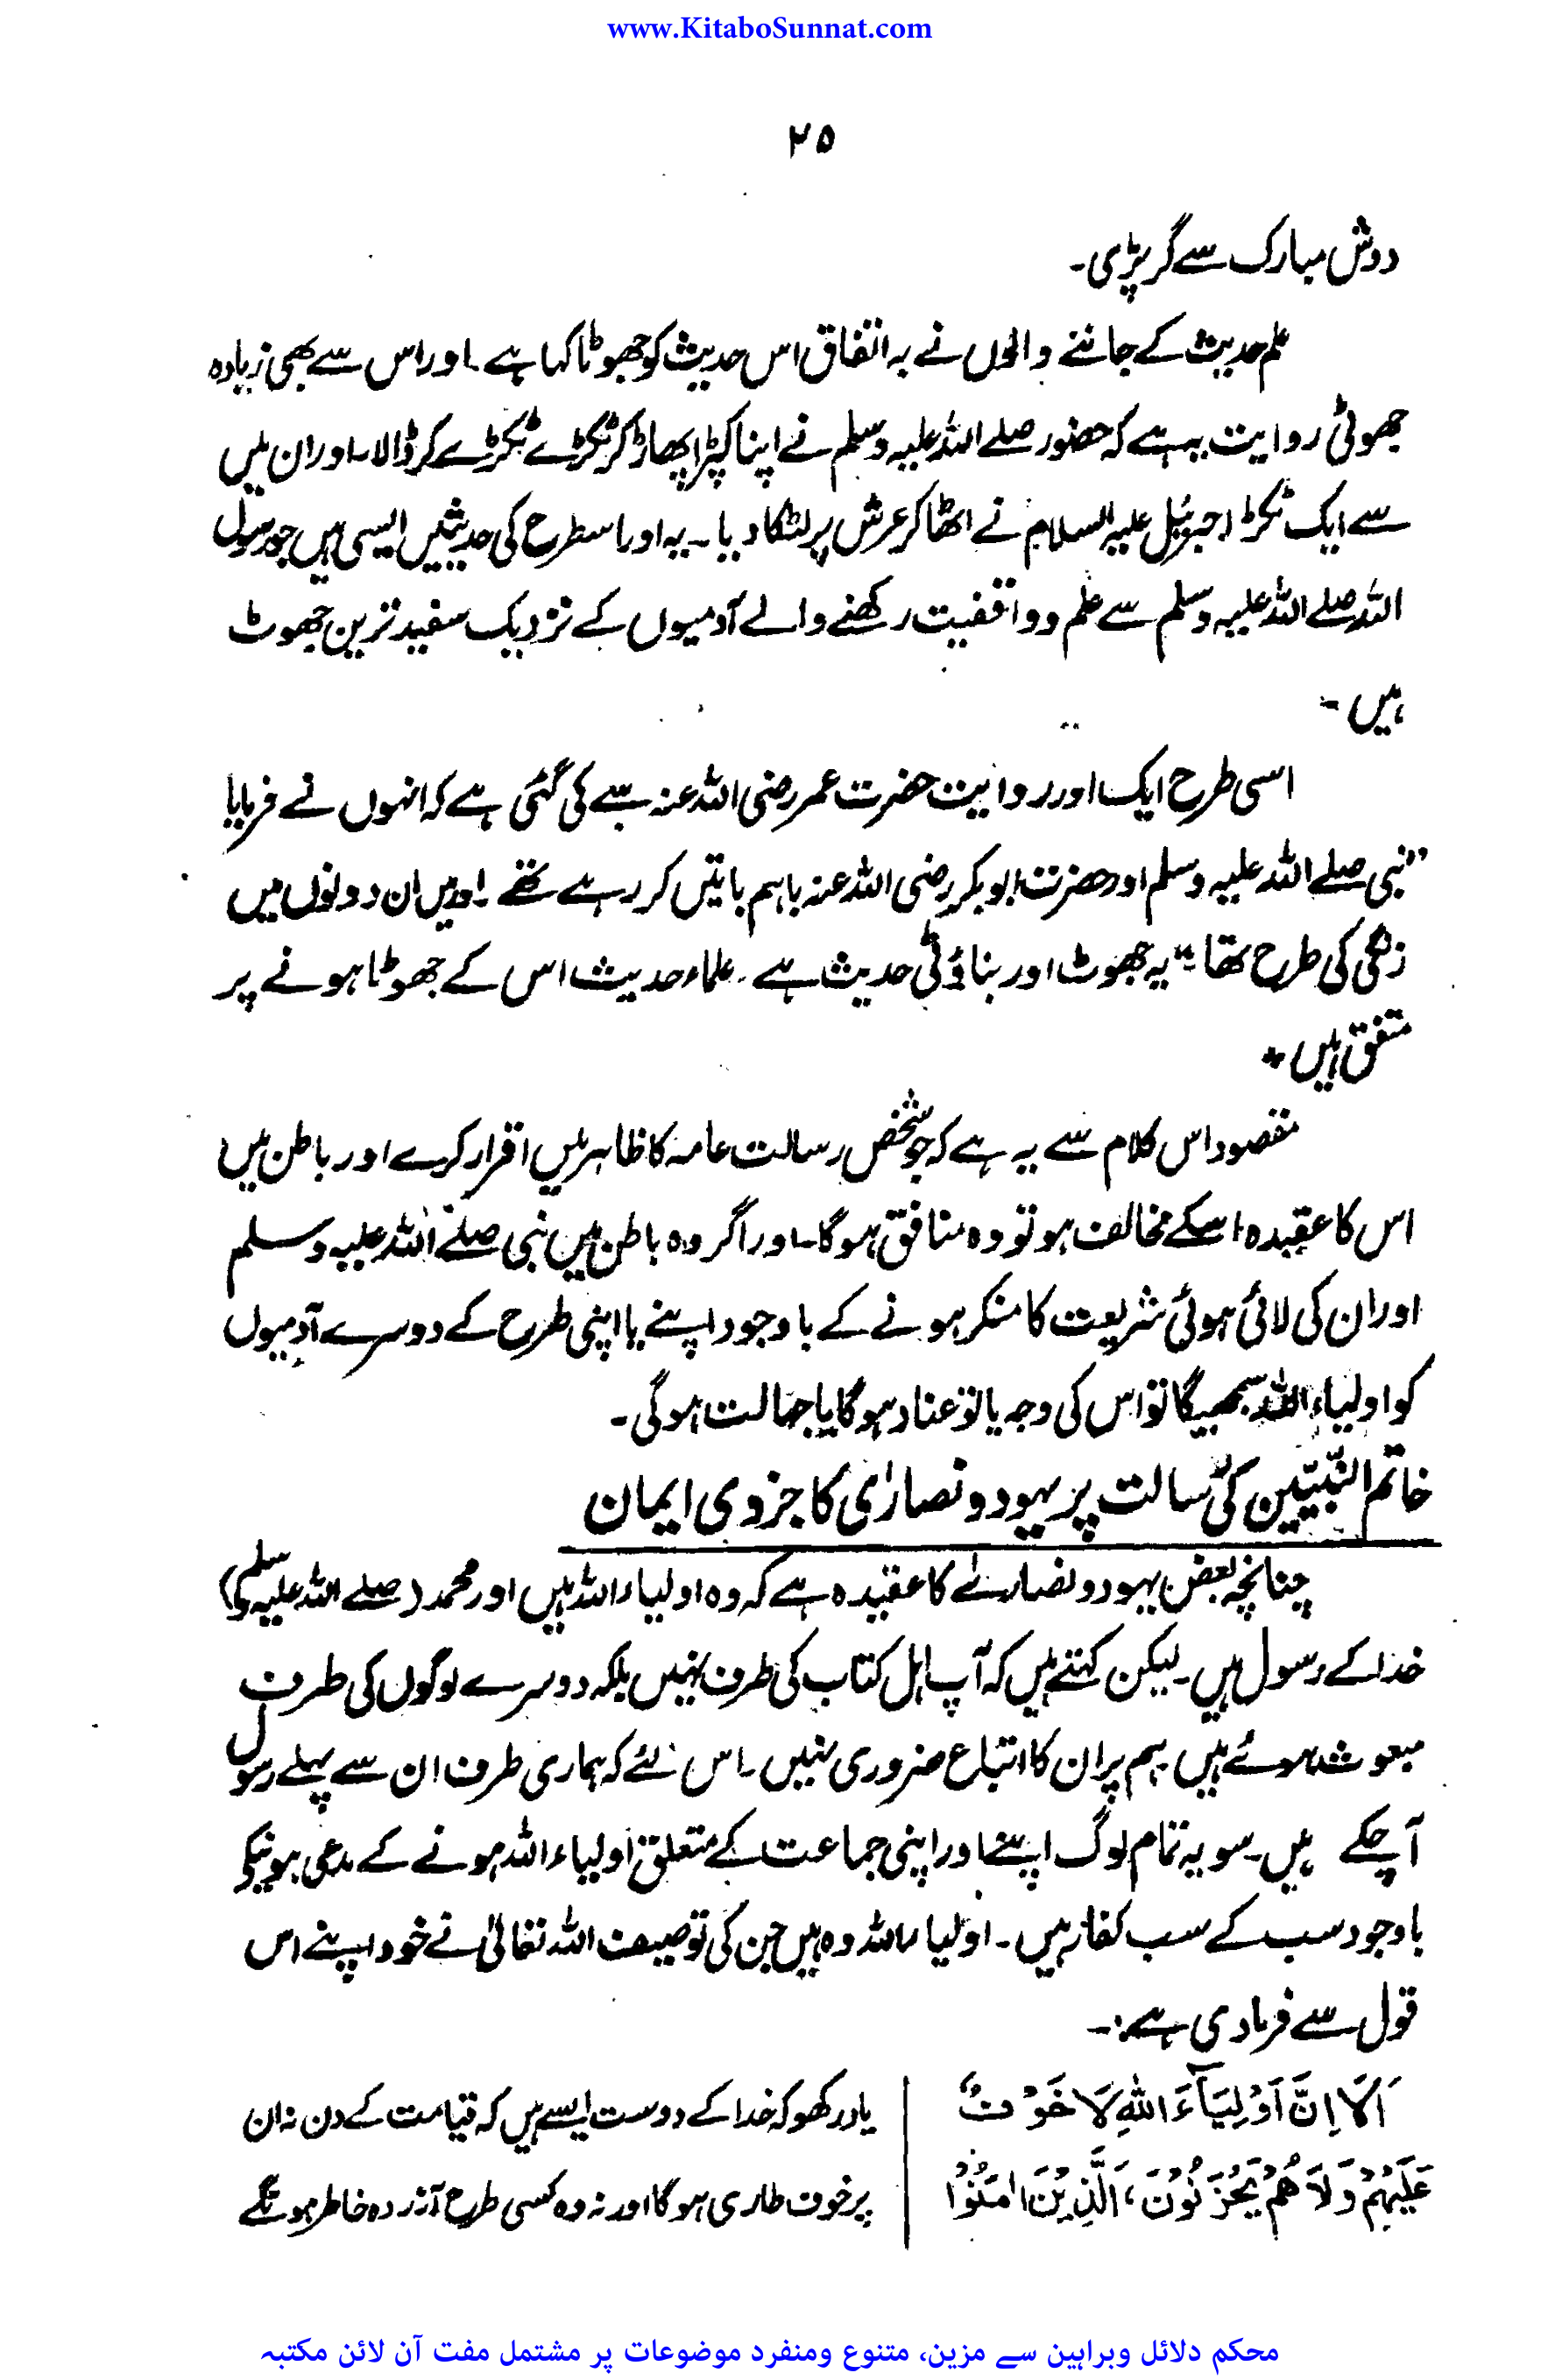 www.KitaboSunnat.com
۲۵
دوش مبارک سے گر پڑی۔
علم حدیث کے جاننے والوں نے بہ اتفاق اس حدیث کو جھوٹا کہا ہے ۔ اور اس سے بھی زیادہ
جھوٹی روایت یہ ہے کہ حضور صلے اللہ علیہ وسلم نے اپنا کپڑا پھاڑ کر ٹکڑے ٹکڑے کر ڈالا۔ اور ان میں
سے ایک ٹکڑا جبرئیل علیہ السلام نے اٹھا کر عرش پر لٹکا دیا ۔ یہ اور اسطرح کی حدیثیں ایسی ہیں جو رسول
اللہ صلے اللہ علیہ وسلم سے علم و واقفیت رکھنے والے آدمیوں کے نزدیک سفید ترین جھوٹ
ہیں ۔
اسی طرح ایک اور روایت حضرت عمر رضی اللہ عنہ سے کی گئی ہے کہ انہوں نے فرمایا
”نبی صلے اللہ علیہ وسلم اور حضرت ابوبکر رضی اللہ عنہ باہم باتیں کر رہے تھے ۔ اور میں ان دونوں میں
زنگی کی طرح تھا ۔“ یہ جھوٹ اور بناوٹی حدیث ہے ۔ علماء حدیث اس کے جھوٹا ہونے پر
متفق ہیں ۔
مقصود اس کلام سے یہ ہے کہ جو شخص رسالت عامہ کا ظاہر میں اقرار کرے اور باطن میں
اس کا عقیدہ اسکے مخالف ہو تو وہ منافق ہوگا۔ اور اگر وہ باطن میں نبی صلے اللہ علیہ وسلم
اور ان کی لائی ہوئی شریعت کا منکر ہونے کے باوجود اپنے یا اپنی طرح کے دوسرے آدمیوں
کو اولیاء اللہ سمجھیگا تو اس کی وجہ یا تو عناد ہوگا یا جہالت ہوگی ۔
خاتم النّبیّین کی رسالت پر یہود و نصارٰی کا جزوی ایمان
چنانچہ بعض یہود و نصارےٰ کا عقیدہ ہے کہ وہ اولیاء اللہ ہیں اور محمد (صلے اللہ علیہ وسلم)
خدا کے رسول ہیں۔ لیکن کہتے ہیں کہ آپ اہل کتاب کی طرف نہیں بلکہ دوسرے لوگوں کی طرف
مبعوث ہوئے ہیں ہم پر ان کا اتباع ضروری نہیں ۔ اس لئے کہ ہماری طرف ان سے پہلے رسول
آ چکے ہیں۔ سو یہ تمام لوگ اپنے اور اپنی جماعت کے متعلق اولیاء اللہ ہونے کے مدعی ہونیکے
باوجود سب کے سب کفار ہیں ۔ اولیاء اللہ وہ ہیں جن کی توصیف اللہ تعالیٰ نے خود اپنے اس
قول سے فرما دی ہے :۔
اَلَا اِنَّ اَوْلِيَآءَ اللّٰهِ لَا خَوْفٌ
عَلَيْهِمْ وَلَا هُمْ يَحْزَنُوْنَ ، اَلَّذِيْنَ اٰمَنُوْا
یاد رکھو کہ خدا کے دوست ایسے ہیں کہ قیامت کے دن نہ ان
پر خوف طاری ہوگا اور نہ وہ کسی طرح آزردہ خاطر ہونگے
محکم دلائل وبراہین سے مزین، متنوع ومنفرد موضوعات پر مشتمل مفت آن لائن مکتبہ